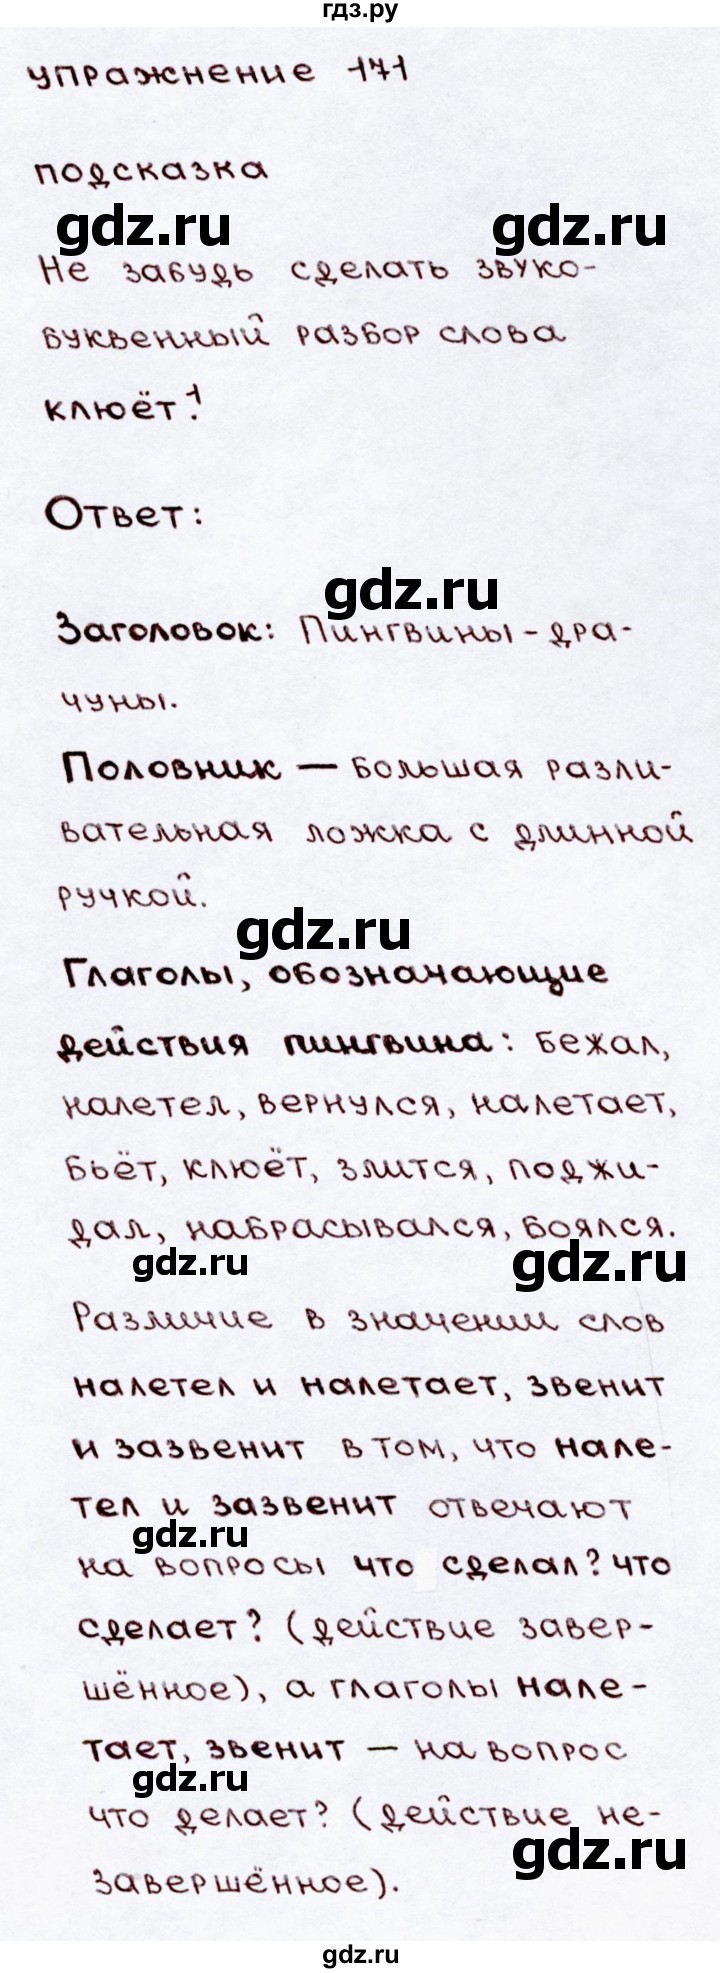 гдз.ру
упражнение 171
подсказка
gdz.ru gdz.ru
Не забудь сделать звуко-
буквенный разбор слова
клюёт!
Ответ:
gdz.ru
Заголовок: Пингвины-дра-
чуны.
Половник — большая разли-
вательная ложка с длинной
ручкой.
gdz.ru
Глаголы, обозначающие
действия пингвина: бежал,
налетел, вернулся, налетает,
бьёт, клюёт, злится, поджи-
дал, набрасывался, боялся.
gdz.ru gdz.ru
Различие в значении слов
налетел и налетает, звенит
и зазвенит в том, что нале-
тел и зазвенит отвечают
gdz.ru
на вопросы что сделал? что
сделает? (действие завер-
шённое), а глаголы нале-
тает, звенит — на вопрос
gdz.ru
что делает? (действие не-
gdz.ru
завершённое).
gdz.ru